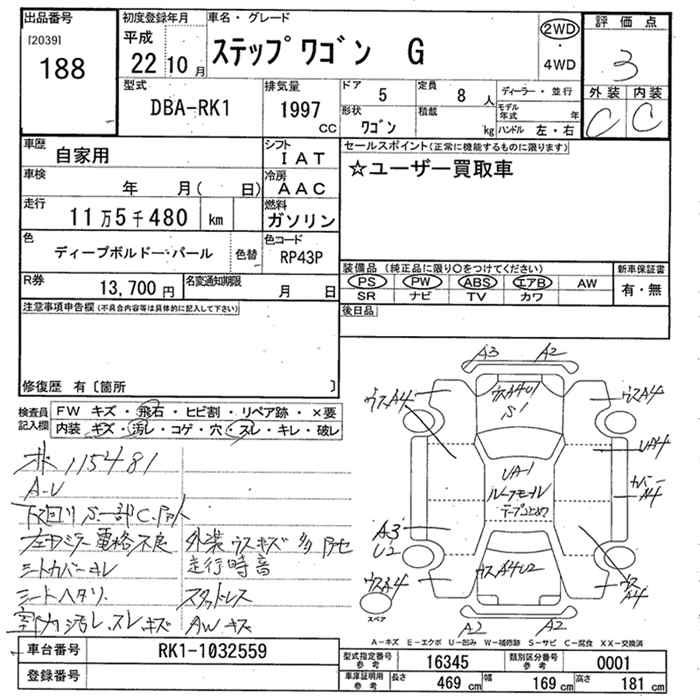 出品番号
[2039]
188
初度登録年月
平成
22 10 月
車名・グレード
ステップワゴン G
2WD
・
4WD
評価点
3
外装 内装
C C
型式
DBA-RK1
排気量
1997 CC
ドア 5
定員 8 人
形状 ワゴン
積載 kg
ディーラー・並行
モデル年式 年
ハンドル 左・右
車歴 自家用
シフト IAT
車検 年 月( 日)
冷房 AAC
走行 11万5千480 km
燃料 ガソリン
色 ディープボルドー・パール 色替
色コード RP43P
R券 13,700 円
名変通知期限 月 日
セールスポイント(正常に機能するものに限ります)
☆ユーザー買取車
装備品(純正品に限り○をつけてください)
PS PW ABS エアB AW
SR ナビ TV カワ
新車保証書
有・無
後日品
注意事項申告欄(不具合内容等は具体的に記入して下さい)
修復歴 有〔箇所 〕
検査員記入欄
FW キズ・飛石・ヒビ割・リペア跡・×要
内装・キズ・汚レ・コゲ・穴・スレ・キレ・破レ
115481
A-U
シートカバーキレ
シートヘタリ
室内汚レ、スレキズ
走行時音
スタッドレス
AWキズ
A3 A2
ウスA4
ウスA4U1
S1
ウスA4
UA4
カバーA4
UA-1
ルーフモール
A3
U2
ウスA4
ウスA4U2
ウスA4
A2 A2
スペア
A-キズ E-エクボ U-凹み W-補修跡 S-サビ C-腐食 XX-交換済
車台番号 RK1-1032559
登録番号
型式指定番号 参考 16345
類別区分番号 参考 0001
車庫証明用 参考 長さ 469 cm 幅 169 cm 高さ 181 cm